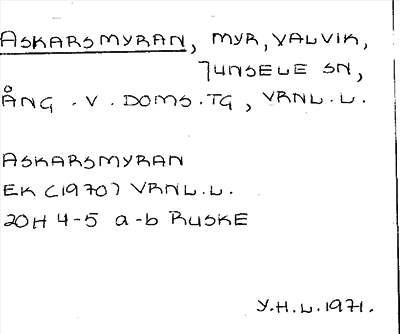 ASKARSMYRAN, MYR, VALVIK,
JUNSELE SN,
ÅNG. V. DOMS. TG, VRNL. L.
ASKARSMYRAN
EK (1970) VRNL. L.
20H 4-5 a-b RUSKE
Y.H.L. 1971.